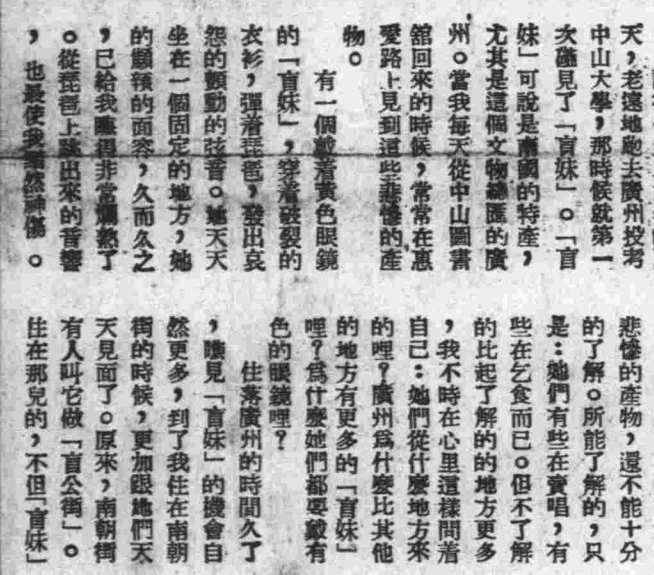 天，老遠地跑去廣州投考
中山大學，那時候就第一
次碰見了「盲妹」。「盲
妹」可說是南國的特產，
尤其是這個文物總匯的廣
州。當我每天從中山圖書
舘回來的時候，常常在惠
愛路上見到這些悲慘的產
物。
有一個戴着黃色眼鏡
的「盲妹」，穿着破裂的
衣衫，彈着琵琶，發出哀
怨的顫動的弦音。她天天
坐在一個固定的地方，她
的顦顇的面容，久而久之
，已給我瞧得非常爛熟了
。從琵琶上跳出來的音響
，也最使我黯然神傷。
悲慘的產物，還不能十分
的了解。所能了解的，只
是：她們有些在賣唱，有
些在乞食而已。但不了解
的比起了解的的地方更多
，我不時在心里這樣問着
自己：她們從什麼地方來
的哩？廣州爲什麼比其他
的地方有更多的「盲妹」
哩？爲什麼她們都要戴有
色的眼鏡哩？
住落廣州的時間久了
，瞧見「盲妹」的機會自
然更多，到了我住在南朝
街的時候，更加跟她們天
天見面了。原來，南朝街
有人叫它做「盲公街」。
住在那兒的，不但「盲妹」